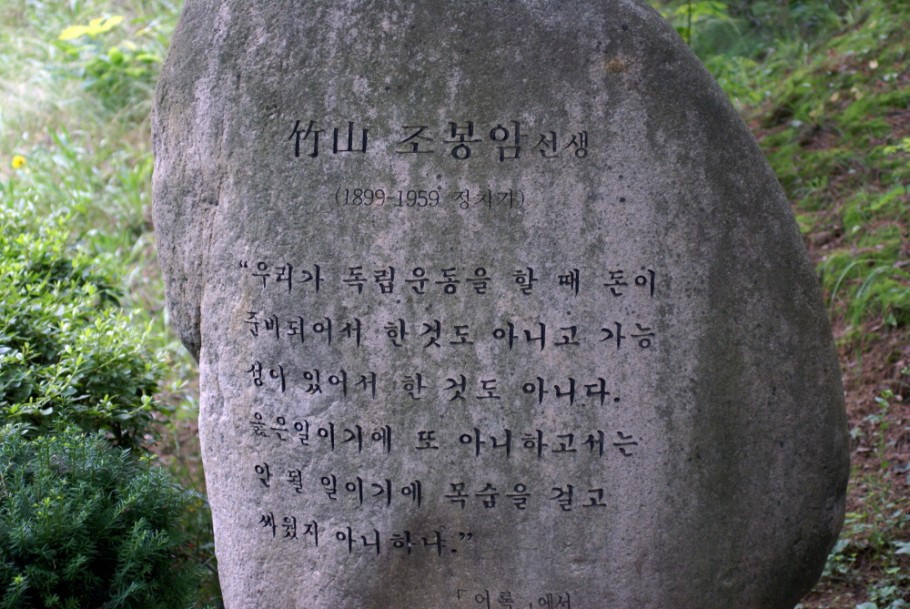 竹山 조봉암 선생
(1899-1959 정치가)
“우리가 독립운동을 할 때 돈이
준비되어서 한것도 아니고 가능
성이 있어서 한 것도 아니다.
옳은일이기에 또 아니하고서는
안 될 일이기에 목숨을 걸고
싸웠지 아니하냐.”
「어록」에서